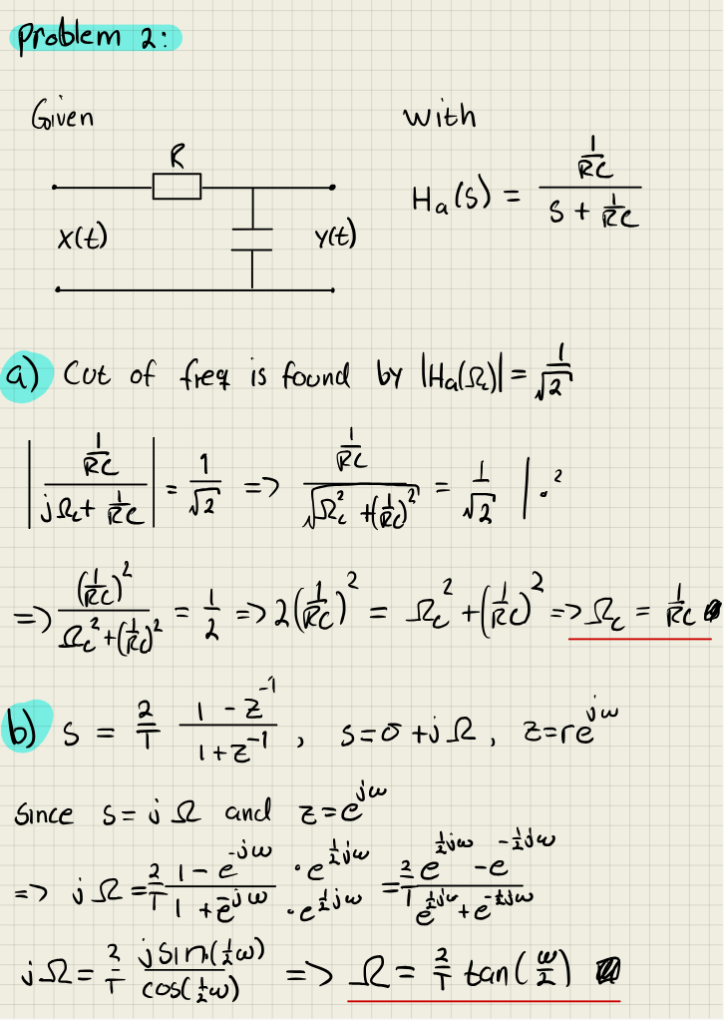 Problem 2:
Given with
R
x(t) y(t)
Ha(s) = (1/RC) / (s + 1/RC)
a) Cut of freq is found by |Ha(Ωc)| = 1/√2
|(1/RC) / (jΩc + 1/RC)| = 1/√2 => (1/RC) / √(Ωc² + (1/RC)²) = 1/√2 | ·²
=> (1/RC)² / (Ωc² + (1/RC)²) = 1/2 => 2(1/RC)² = Ωc² + (1/RC)² => Ωc = 1/RC
b) s = 2/T (1 - z⁻¹) / (1 + z⁻¹) , s = σ + jΩ , z = re^(jω)
Since s = jΩ and z = e^(jω)
=> jΩ = 2/T (1 - e^(-jω)) / (1 + e^(-jω)) · e^(½jω) / · e^(½jω) = 2/T (e^(½jω) - e^(-½jω)) / (e^(½jω) + e^(-½jω))
jΩ = 2/T (j sin(½ω)) / (cos(½ω)) => Ω = 2/T tan(ω/2)